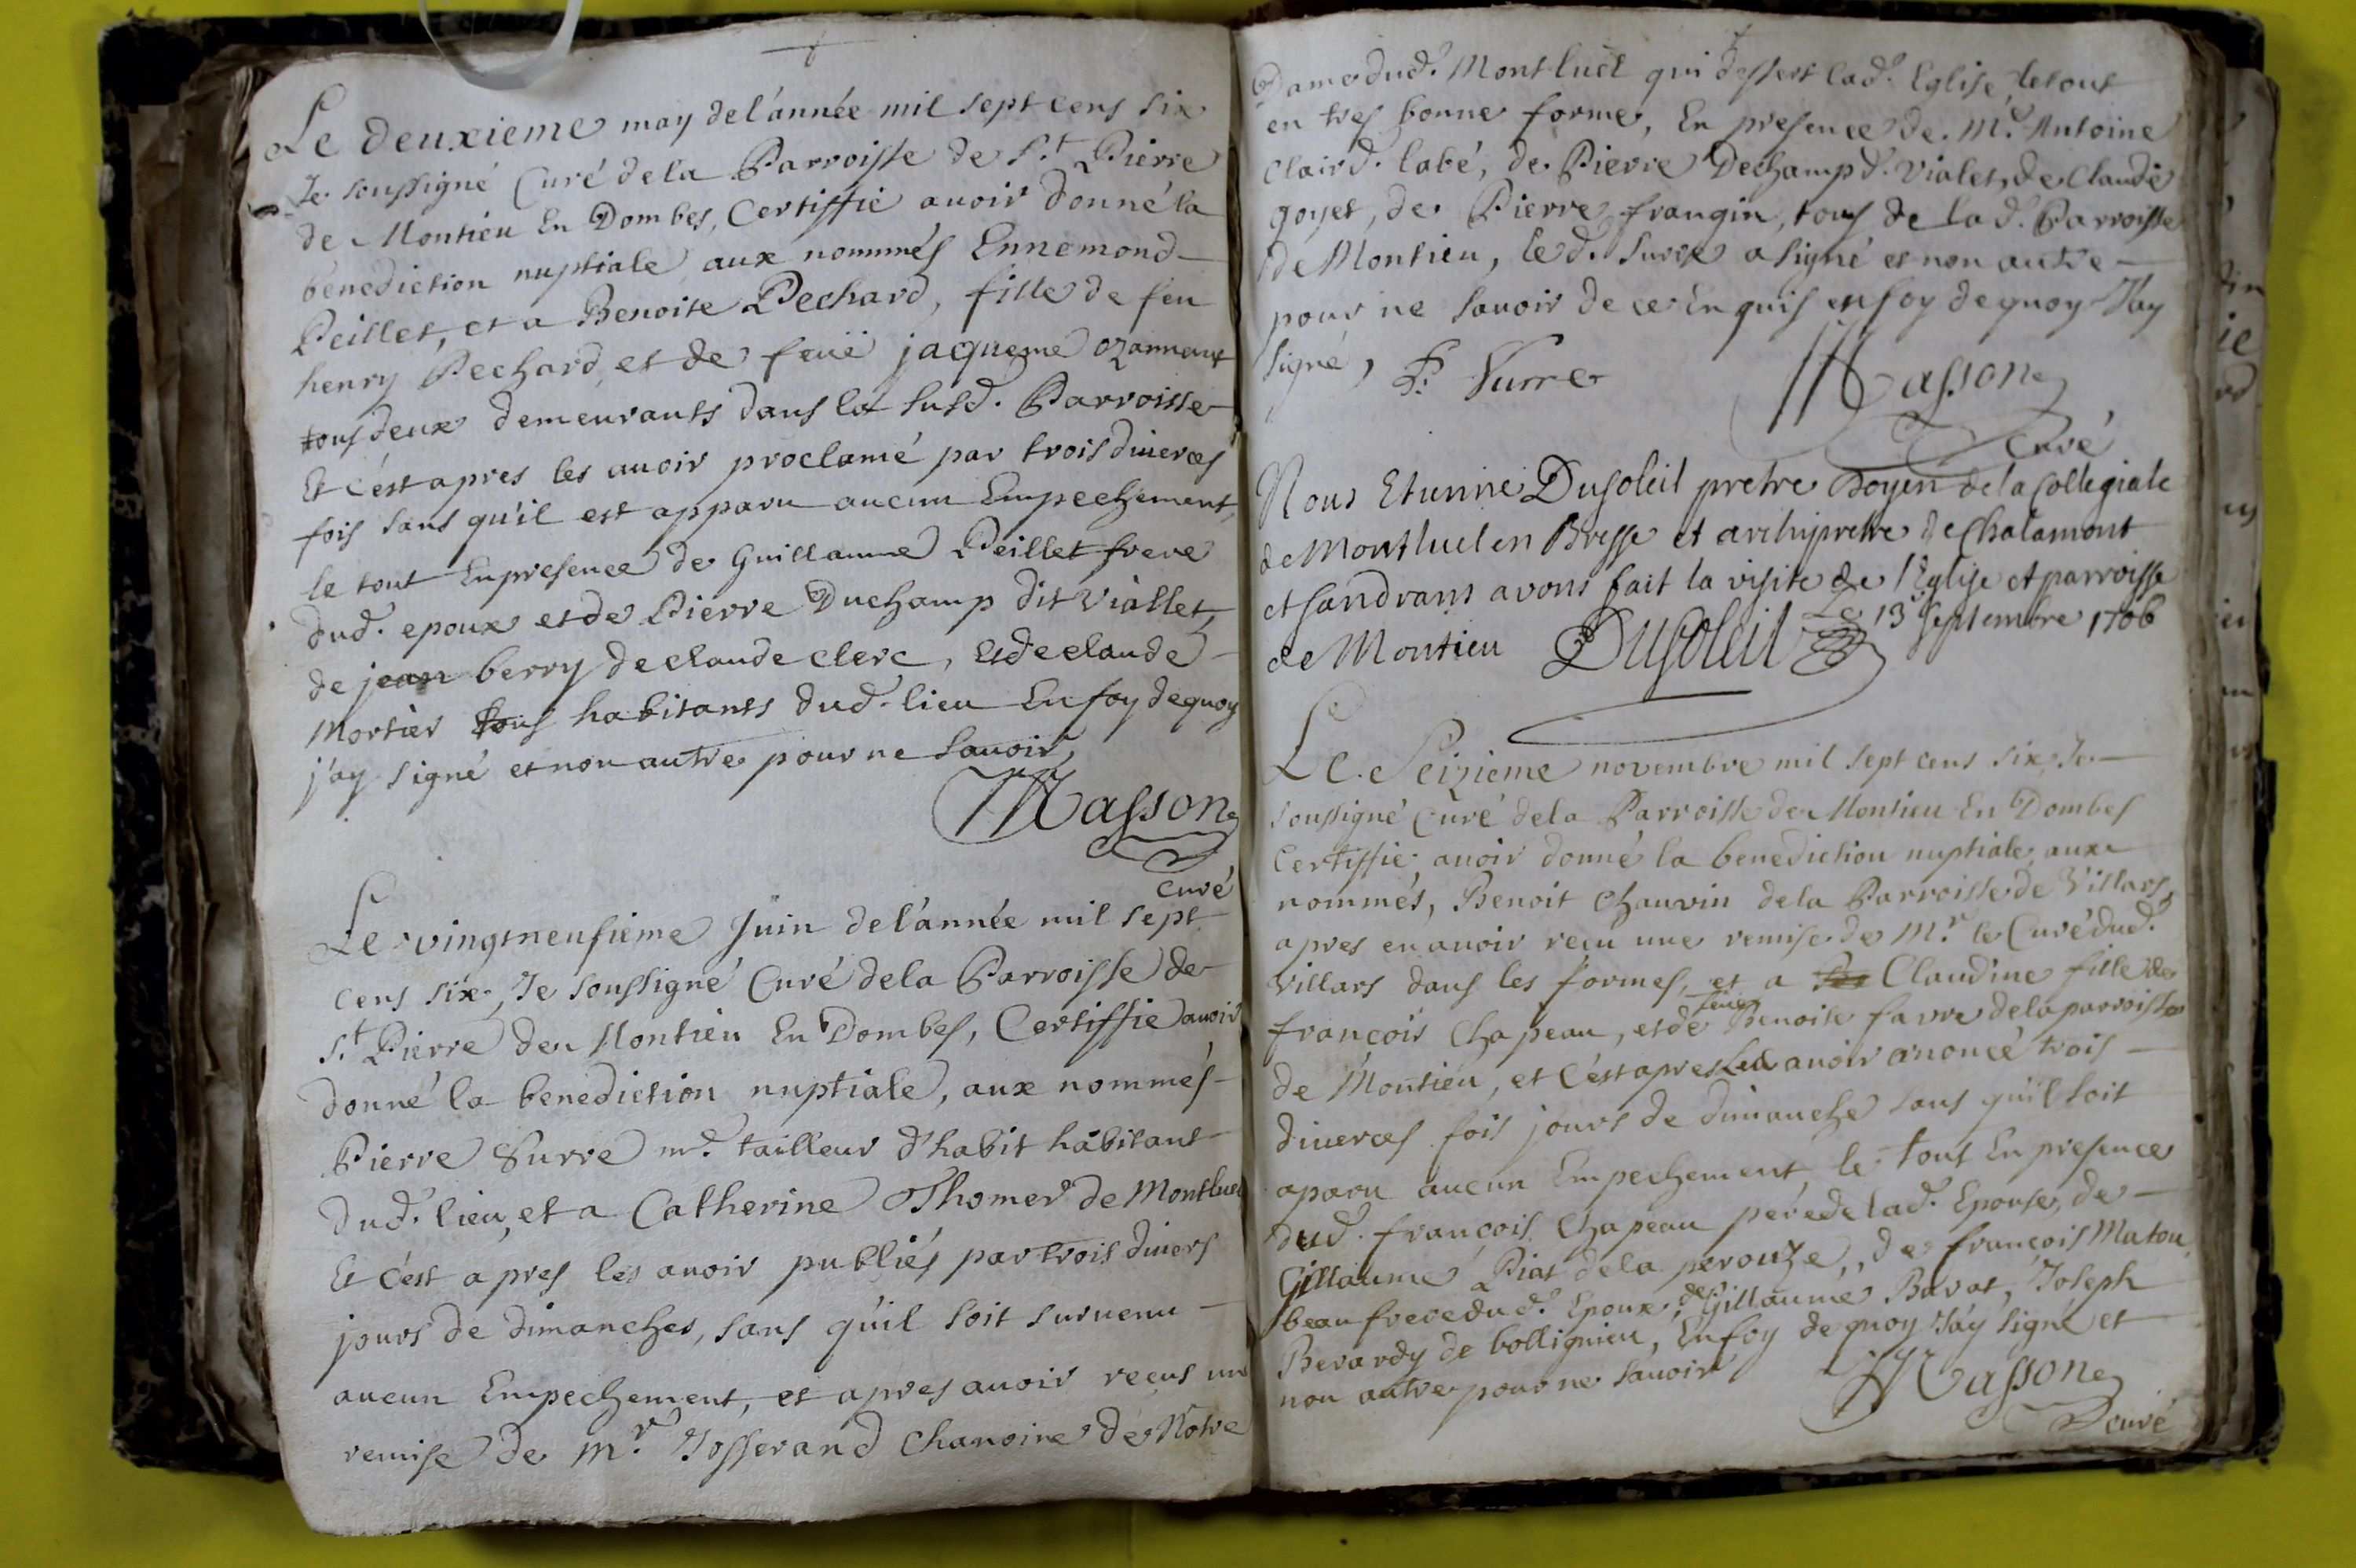 Le deuxieme may de l'année mil sept cens six
Je soussigné Curé de la Parroisse de S.t Pierre
de Montieu En Dombes, Certiffie auoir donné la
benediction nuptiale aux nommés Ennemond
Peillet, et a Benoite Pechard, fille de feu
henry Pechard, et de feuë jaqueme ozannent
tous deux demeurants dans la susd. Parroisse
Et c'est apres les auoir proclamé par trois diuerces
fois sans qu'il est apparu aucun Empechement,
le tout En presence de Guillaume Peillet frere
dud. epoux et de Pierre Duchamp dit Viallet,
de jean berry de claude clerc, et de claude
Mortier tous habitants dud. lieu En foy de quoy
j'ay signé et non autre pour ne sauoir,
Masson
Curé
Le vingtneufieme Juin de l'année mil sept
cens six, Je soussigné Curé de la Parroisse de
S.t Pierre de Montieu En Dombes, Certiffie auoir
donné la benediction nuptiale, aux nommés
Pierre Surre m.e tailleur d'habit habitant
dud. lieu, et a Catherine Thomer de Montluel
Et c'est apres les auoir publiés par trois diuers
jours de dimanches, sans qu'il soit suruenu
aucun Empechement, et apres auoir reçus un
remise de M.r Josserand Chanoine de Notre
Dame dud. Montluel qui dessert lad. Eglise, le tout
en tres bonne forme, En presence de M.e Antoine
Clair d. labé, de Pierre Dechamp d. Vialet, de Claude
goyet, de Pierre frangin, tous de lad. Parroisse
de Montieu, led. Surre a signé et non autre
pour ne sauoir de ce Enquis en foy de quoy J'ay
signé, P. Surre
Masson
Curé
Nous Etienne Dusoleil pretre Doyen de la Collegiale
de Montluel en Bresse et archipretre de Chalamont
et sandrans avons fait la visite de l'Eglise et parroisse
de Montieu Le 13 Septembre 1706
Dusoleil
Le Seizieme novembre mil sept cens six Je
soussigné Curé de la Parroisse de Montieu En Dombes
Certiffie auoir donné la benediction nuptiale aux
nommés, Benoit Chauvin de la Parroisse de Villars,
apres en auoir reçu une remise de M.r le Curé dud.
Villars dans les formes, et a Claudine fille de
feue
françois Chapeau, et de Benoite favre de la parroisse
de Montieu, et c'est apres les auoir anoncé trois
diuerces fois jours de dimanche sans qu'il soit
aparu aucun Empechement, le tout En presence
dud. françois Chapeau pere de lad. Epouse, de
Gillaume Piat de la perouze, de françois Matou
beau frere dud. Epoux, de Gillaume Bavat, Joseph
Berardy de bollignieu, En foy de quoy J'ay signé et
non autre pour ne sauoir
Masson
curé